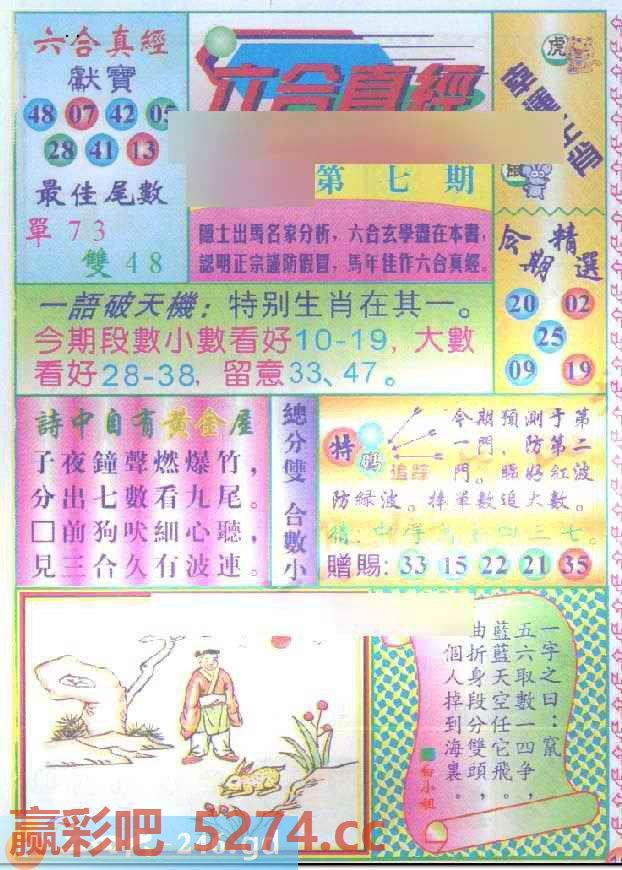 六合真經
獻寶
48 07 42 05
28 41 13
最佳尾數
單 7 3
雙 4 8
六合真經
第七期
隱士出馬名家分析，六合玄學盡在本書，
認明正宗謹防假冒，馬年佳作六合真經。
虎
鼠
今期精選
20 02
25
09 19
一語破天機：特別生肖在其一。
今期段數小數看好10-19，大數
看好28-38，留意33、47。
詩中自有黃金屋
子夜鐘聲燃爆竹，
分出七數看九尾。
□前狗吠細心聽，
見三合久有波連。
總分雙 合數小
特碼
追踪
今期預測于第
一門，防第二
門。睇好紅波
防綠波。捧單數追大數。
贈賜：33 15 22 21 35
一字之曰：竄
五六取數一四爭，
藍藍天空任它飛。
曲折身段分雙頭，
個人掉到海裏。
白小姐
赢彩吧 5274.cc